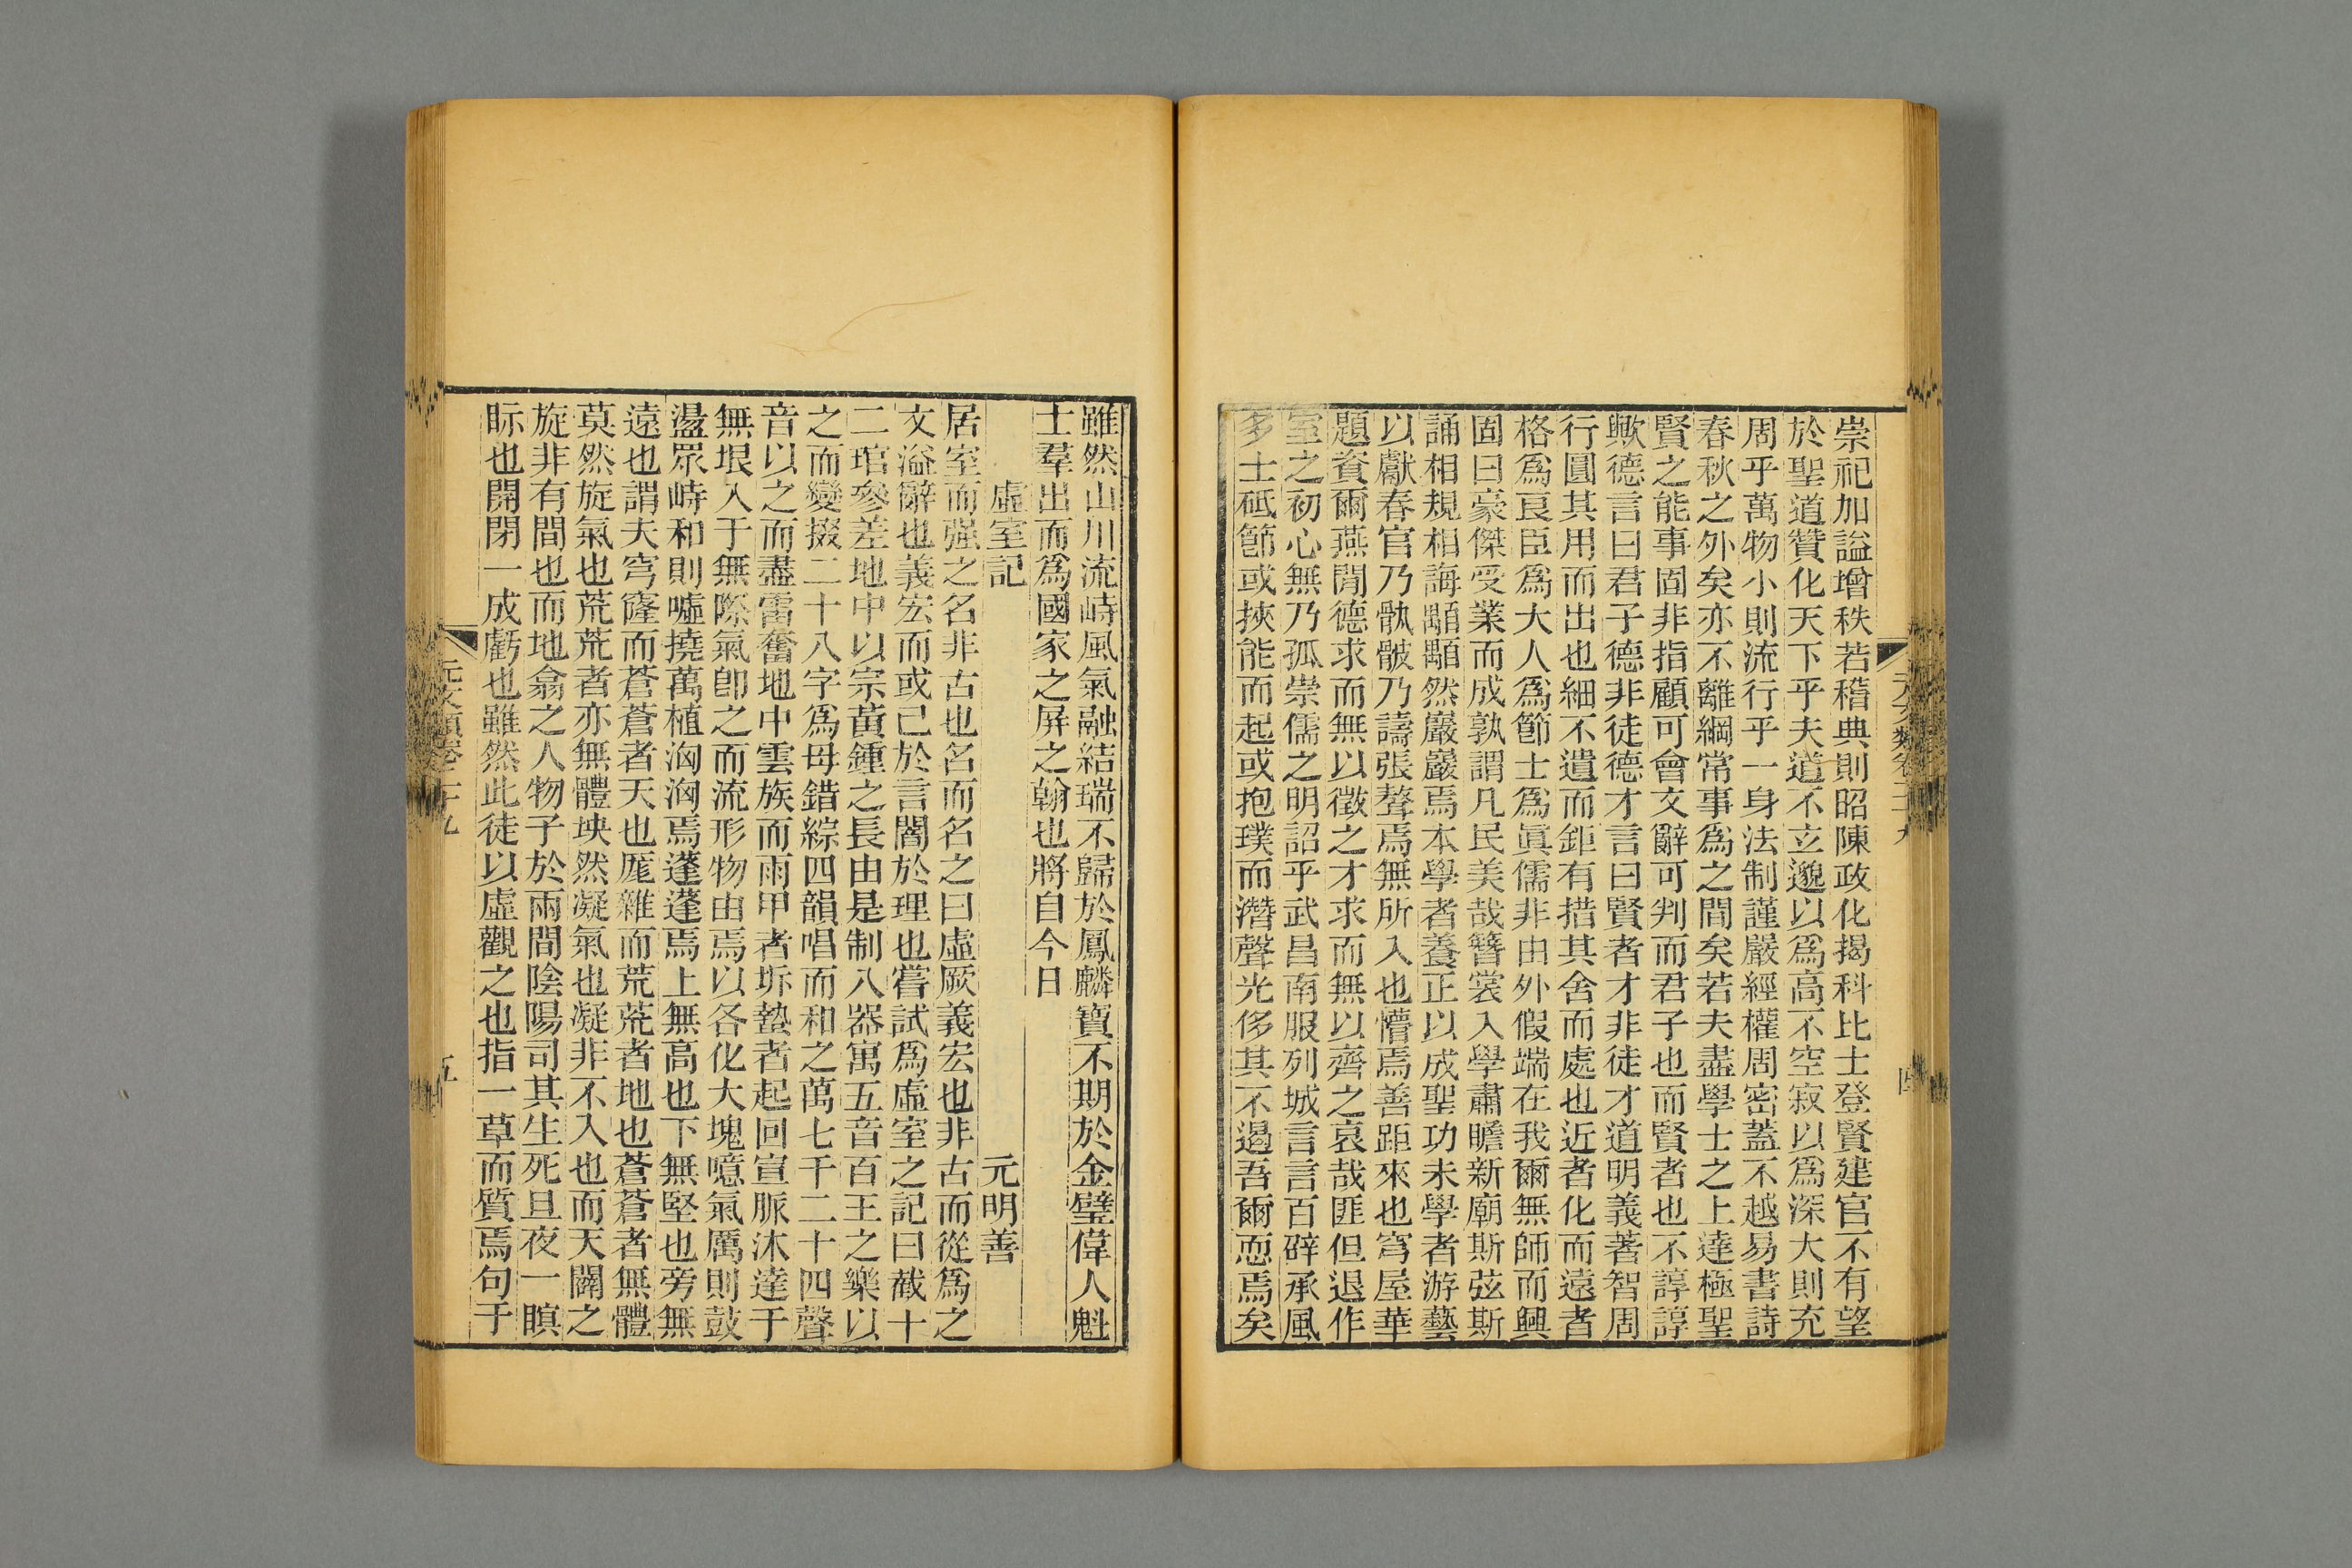 崇祀加謚增秩若稽典則昭陳政化揭科比士登賢建官不有望
於聖道贊化天下乎夫道不立邈以爲高不空寂以爲深大則充
周乎萬物小則流行乎一身法制謹嚴經權周密蓋不越易書詩
春秋之外矣亦不離綱常事爲之間矣若夫盡學士之上達極聖
賢之能事固非指顧可會文辭可判而君子也而賢者也不諄諄
歟德言曰君子德非徒德才言曰賢者才非徒才道明義著智周
行圓其用而出也細不遺而鉅有措其舍而處也近者化而遠者
格爲良臣爲大人爲節士爲眞儒非由外假端在我爾無師而興
固曰豪傑受業而成孰謂凡民美哉簪裳入學肅瞻新廟斯弦斯
誦相規相誨顒顒然巖巖焉本學者養正以成聖功未學者游藝
以獻春官乃骫骳乃譸張聱焉無所入也懵焉善距來也穹屋華
題資爾燕閒德求而無以徵之才求而無以齊之哀哉匪但退作
室之初心無乃孤崇儒之明詔乎武昌南服列城言言百辟承風
多士砥節或挾能而起或抱璞而潛聲光侈其不遏吾爾恧焉矣
元文類卷二十九
四
雖然山川流峙風氣融結瑞不歸於鳳麟寶不期於金璧偉人魁
士羣出而爲國家之屏之翰也將自今日
虛室記
元明善
居室而强之名非古也名而名之曰虛厥義宏也非古而從爲之
文溢辭也義宏而或己於言闇於理也嘗試爲虛室之記曰截十
二琯參差地中以宗黃鍾之長由是制八器寓五音百王之樂以
之而變掇二十八字爲母錯綜四韻唱而和之萬七千二十四聲
音以之而盡雷奮地中雲族而雨甲者坼蟄者起回宣脈沐達于
無垠入于無際氣卽之而流形物由焉以各化大塊噫氣厲則鼓
盪眾峙和則噓撓萬植洶洶焉蓬蓬焉上無高也下無堅也旁無
遠也謂夫穹窿而蒼蒼者天也厖雜而荒荒者地也蒼蒼者無體
莫然旋氣也荒荒者亦無體坱然凝氣也凝非不入也而天闢之
旋非有間也而地翕之人物子於兩間陰陽司其生死旦夜一瞑
眎也開閉一成虧也雖然此徒以虛觀之也指一草而質焉句于
元文類卷二十九
五